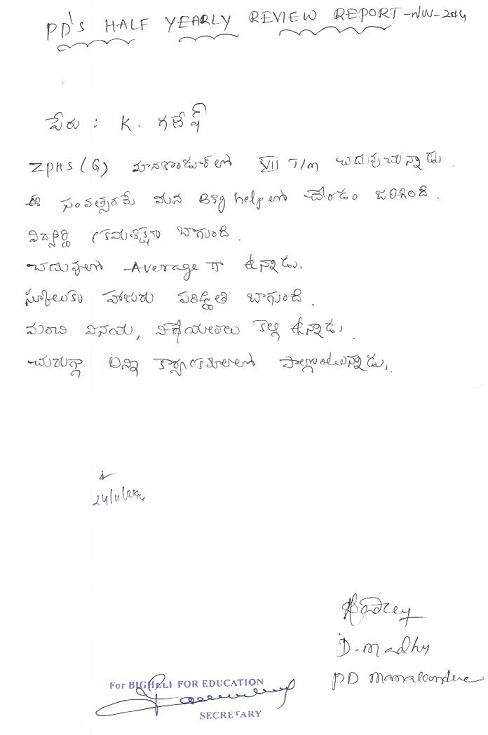 PD'S HALF YEARLY REVIEW REPORT - NW - 2014
పేరు : K. గణేష్
ZPHS (G) మానకొండూర్‌లో VII T/m చదువుచున్నాడు.
ఈ సంవత్సరమే మన BIG help లో చేరడం జరిగింది.
విద్యార్థి క్రమశిక్షణ బాగుంది.
చదువులో Average గా ఉన్నాడు.
స్కూలుకు హాజరు పరిస్థితి బాగుంది.
మంచి వినయ, విధేయతలు కల్గి ఉన్నాడు.
చురుగ్గా అన్ని కార్యక్రమాలలో పాల్గొంటున్నాడు.
24/11/2014
D. Madhu
PD Manakondur
For BIGHELP FOR EDUCATION
SECRETARY